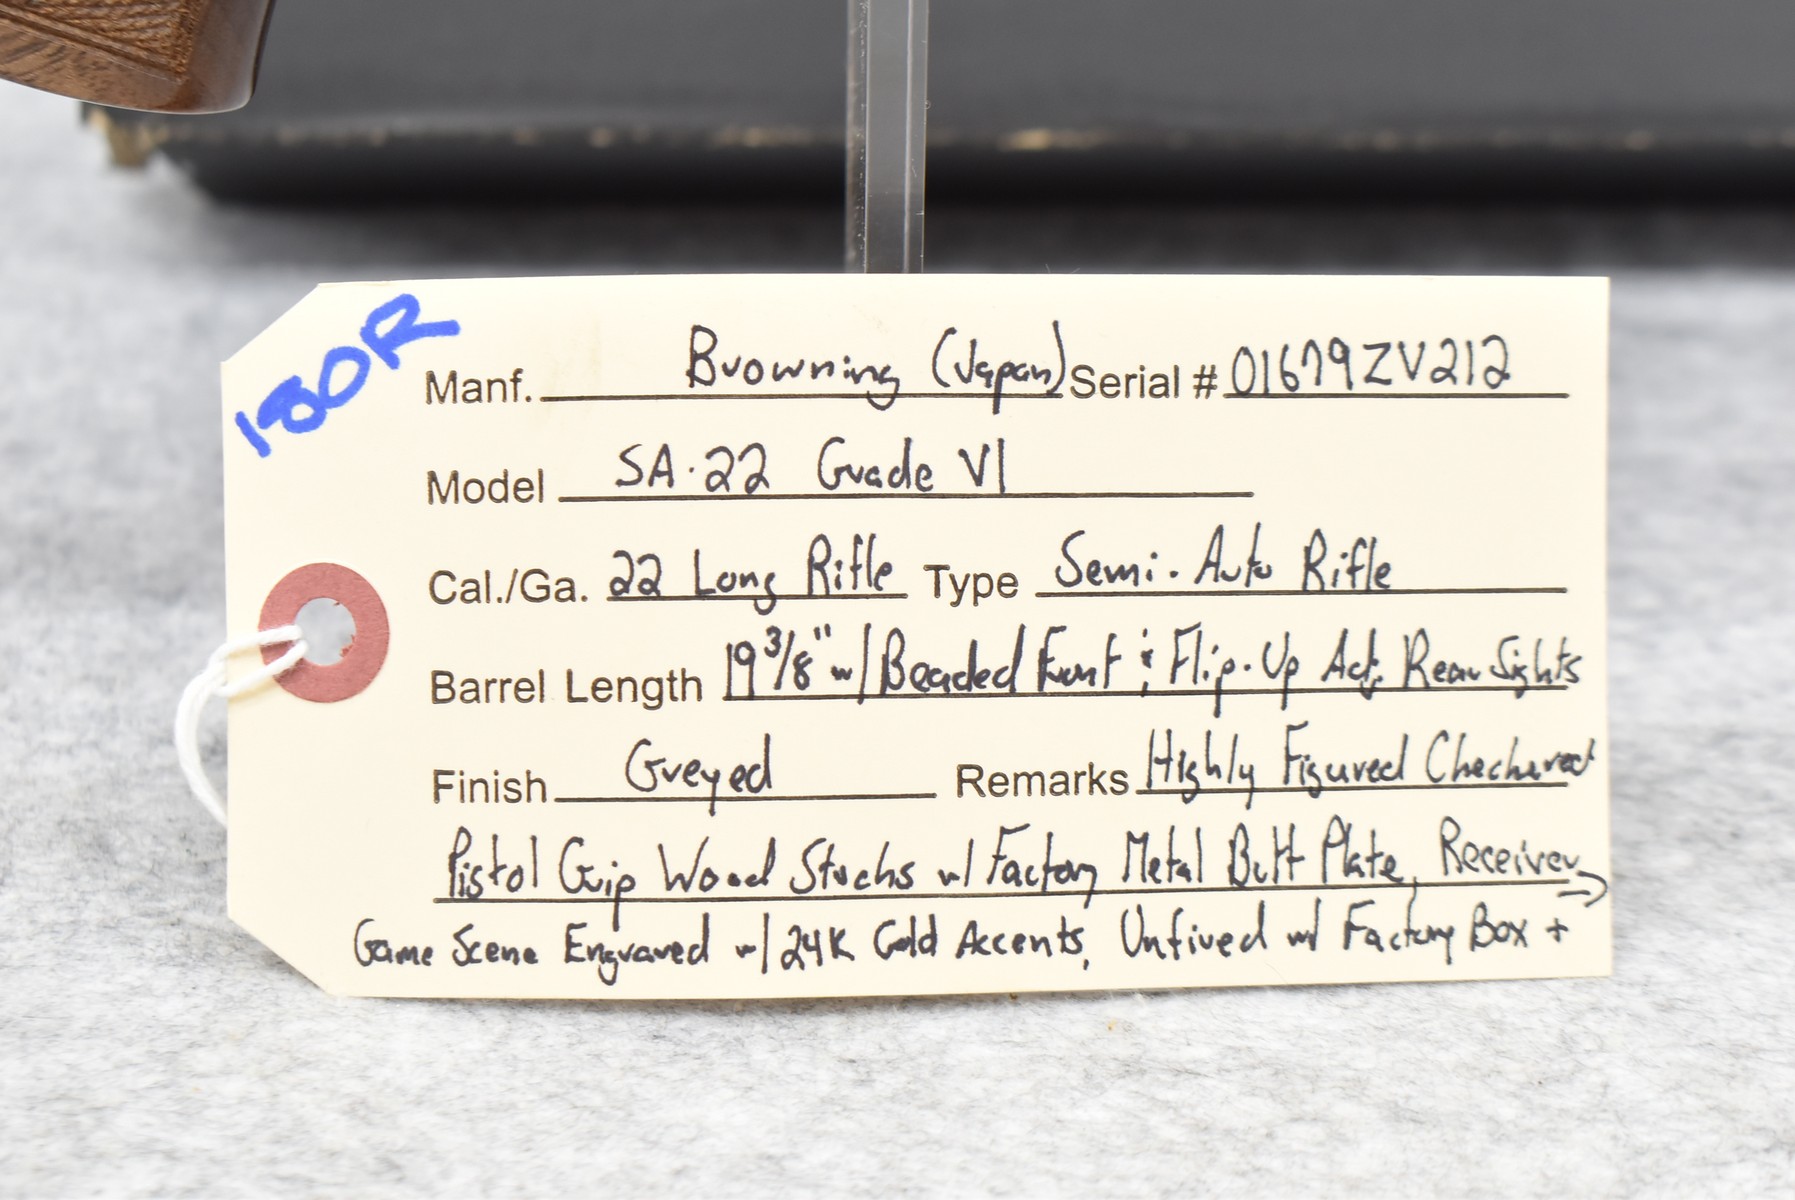 180R
Manf. Browning (Japan) Serial # 01679ZV212
Model SA-22 Grade VI
Cal./Ga. 22 Long Rifle Type Semi-Auto Rifle
Barrel Length 19 3/8" w/ Beaded Front & Flip-Up Adj. Rear Sights
Finish Greyed Remarks Highly Figured Checkered
Pistol Grip Wood Stocks w/ Factory Metal Butt Plate, Receiver →
Game Scene Engraved w/ 24K Gold Accents, Unfired w/ Factory Box +